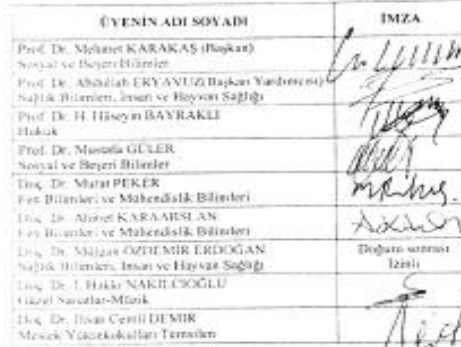 ÜYENİN ADI SOYADI
İMZA
Prof. Dr. Mehmet KARAKAŞ (Başkan)
Sosyal ve Beşeri Bilimler
Prof. Dr. Abdullah ERYAVUZ(Başkan Yardımcısı)
Sağlık Bilimleri, İnsan ve Hayvan Sağlığı
Prof. Dr. H. Hüseyin BAYRAKLI
Hukuk
Prof. Dr. Mustafa GÜLER
Sosyal ve Beşeri Bilimler
Doç. Dr. Murat PEKER
Fen Bilimleri ve Mühendislik Bilimleri
Doç. Dr. Ahmet KARAARSLAN
Fen Bilimleri ve Mühendislik Bilimleri
Doç. Dr. Müjgan ÖZDEMİR ERDOĞAN
Sağlık Bilimleri, İnsan ve Hayvan Sağlığı
Doğum sonrası
İzinli
Doç. Dr. İ. Hakkı NAKİLCİOĞLU
Güzel Sanatlar-Müzik
Doç. Dr. İhsan Cemil DEMİR
Meslek Yüksekokulları Temsilen